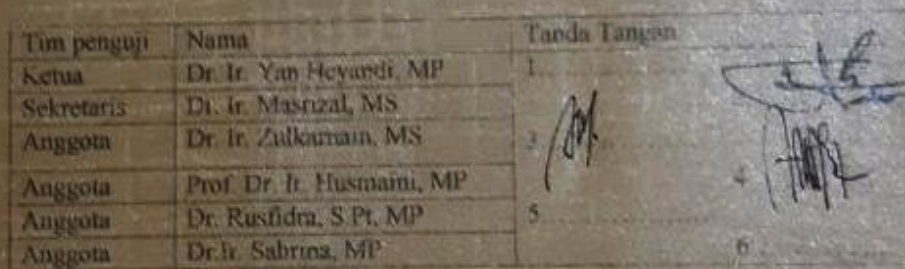 Tim penguji Nama Tanda Tangan
Ketua Dr. Ir. Yan Heyandi, MP 1.....
Sekretaris Dr. Ir. Masrizal, MS
Anggota Dr. Ir. Zulkarnain, MS 3.....
Anggota Prof. Dr. Ir. Husmaini, MP 4
Anggota Dr. Rusfidra, S.Pt, MP 5.....
Anggota Dr.Ir. Sabrina, MP 6.....